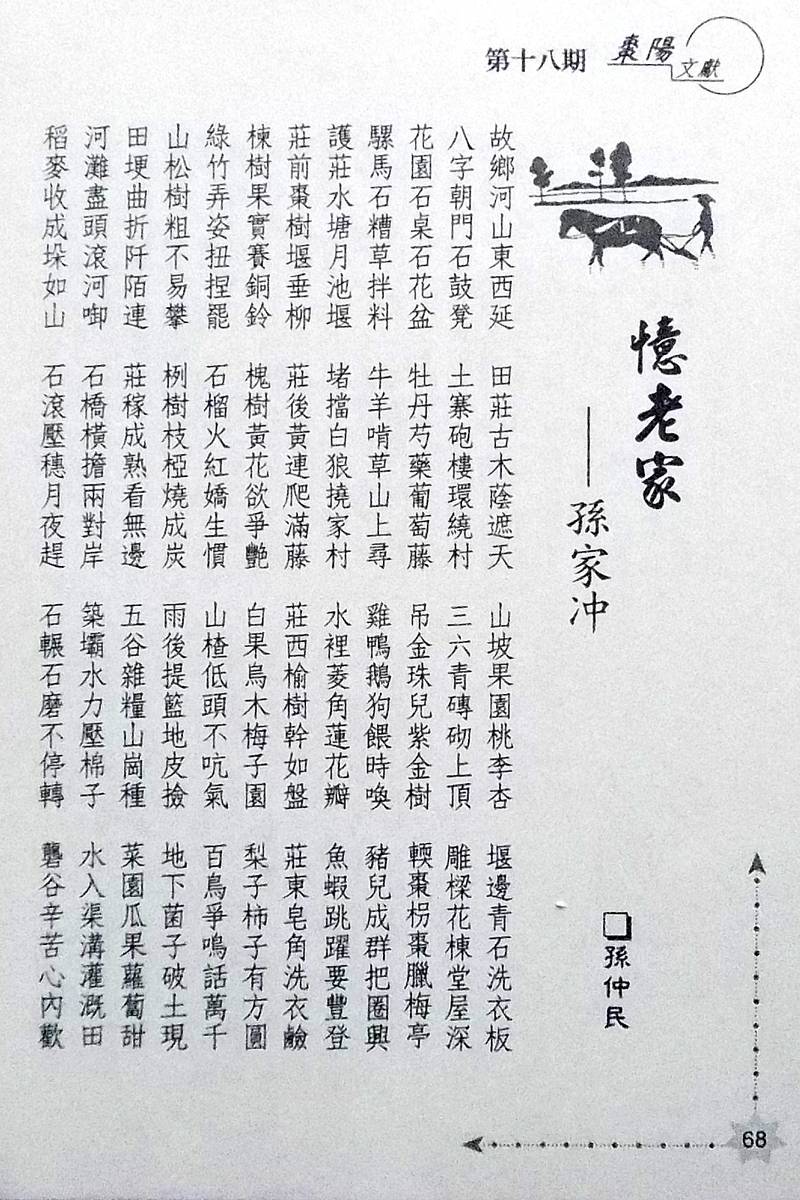 第十八期
棗陽
文獻
憶老家
——孫家冲
□孫仲民
故鄉河山東西延 田莊古木蔭遮天 山坡果園桃李杏 堰邊青石洗衣板
八字朝門石鼓凳 土寨砲樓環繞村 三六青磚砌上頂 雕樑花棟堂屋深
花園石桌石花盆 牡丹芍藥葡萄藤 吊金珠兒紫金樹 輭棗柺棗臘梅亭
騾馬石糟草拌料 牛羊啃草山上尋 雞鴨鵝狗餵時喚 豬兒成群把圈興
護莊水塘月池堰 堵擋白狼撓家村 水裡菱角蓮花瓣 魚蝦跳躍要豐登
莊前棗樹堰垂柳 莊後黃連爬滿藤 莊西榆樹幹如盤 莊東皂角洗衣鹼
楝樹果實賽銅鈴 槐樹黃花欲爭艷 白果烏木梅子園 梨子柿子有方圓
綠竹弄姿扭捏罷 石榴火紅嬌生慣 山楂低頭不吭氣 百鳥爭鳴話萬千
山松樹粗不易攀 栵樹枝椏燒成炭 雨後提籃地皮撿 地下菌子破土現
田埂曲折阡陌連 莊稼成熟看無邊 五谷雜糧山崗種 菜園瓜果蘿蔔甜
河灘盡頭滾河啣 石橋橫擔兩對岸 築壩水力壓棉子 水入渠溝灌溉田
稻麥收成垛如山 石滾壓穗月夜趕 石輾石磨不停轉 礱谷辛苦心內歡
68